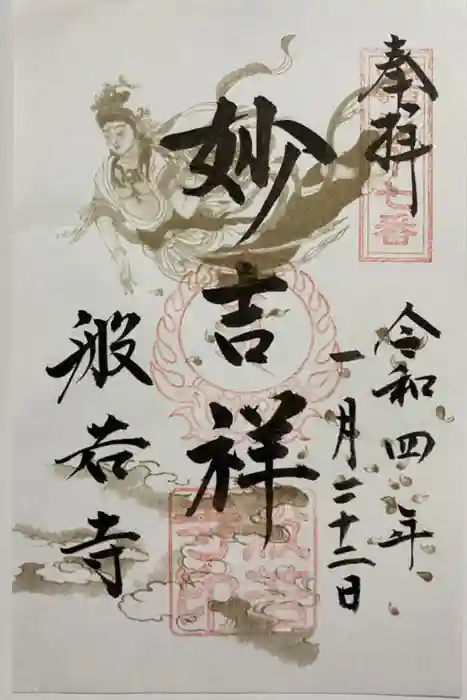 奉拝
七番
令和四年
一月二十二日
妙吉祥
般若寺